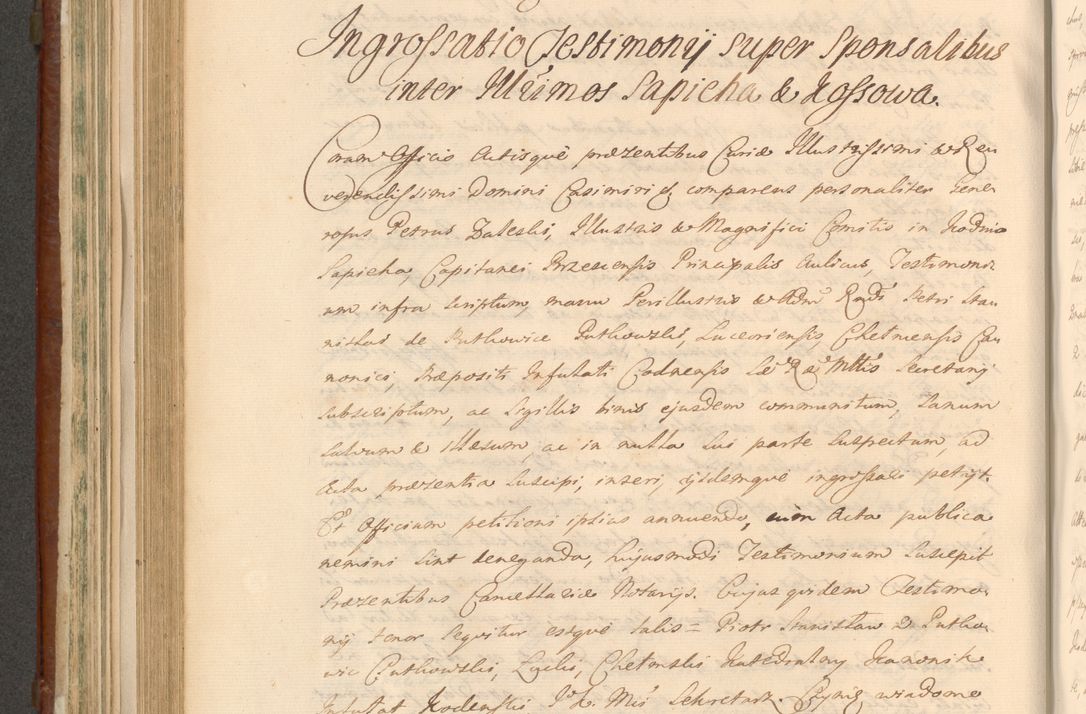 Ingrossatio Testimonij super Sponsalibus
inter Illrimos Sapieha & Kossowa.
Coram Officio Actisquè præzentibus Curiæ Illustrissimi & Reu
verendissimi Domini Casimiri &c comparens personaliter Gene
rosus Petrus Zaleski, Illustris & Magnifici Comitis in Kodnio
Sapieha, Capitanei Brzescensis Principalis Aulicus, Testimoni
um infra scriptum, manu Perillustris & Adm Rndi Petri Stan
nislai de Rutkowice Rutkowski, Luceoriensis, Chelmensis Can
nonici, Præpositi Infulati Codnensis Sæ Ræ Mttis Secretarij
subscriptum, ac Sigillis binis ejusdem communitum, Sanum
Salvum & Illæsum, ac in nulla sui parte suspectum, ad
Acta præzentia suscipi, inseri, ijsdemque ingrossari petijt.
Et Officium petitioni ipsius annuendo, cum Acta publica
nemini sint deneganda, hujusmodi Testimonium suscepit
Præzentibus Cancellariæ Notarijs. Cujus quidem Testimo
nij tenor sequitur estquè talis = Piotr Stanisław z Rutko
wic Rutkowski, Łucki, Chełmski Katedralny Kanonik
Infułat Kodenski J. K. Mci Sekretarz. Czynię wiadomo